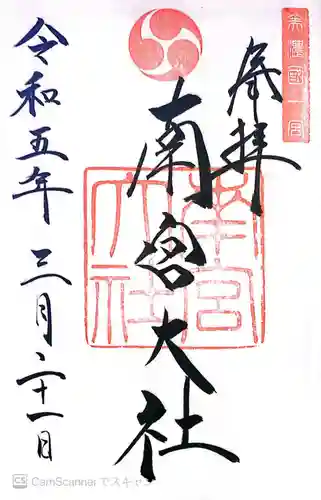 美濃國一宮
奉拝
南宮大社
南宮大社
令和五年三月二十一日
CS CamScanner でスキャ